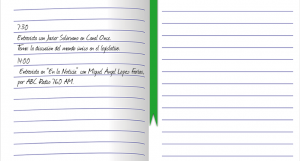 7:30
Entrevista con Javier Solorzano en Canal Once.
Tema: la discusión del mando único en el legislativo.
14:00
Entrevista en "En la Noticia" con Miguel Ángel López Farías,
por ABC Radio 760 AM.